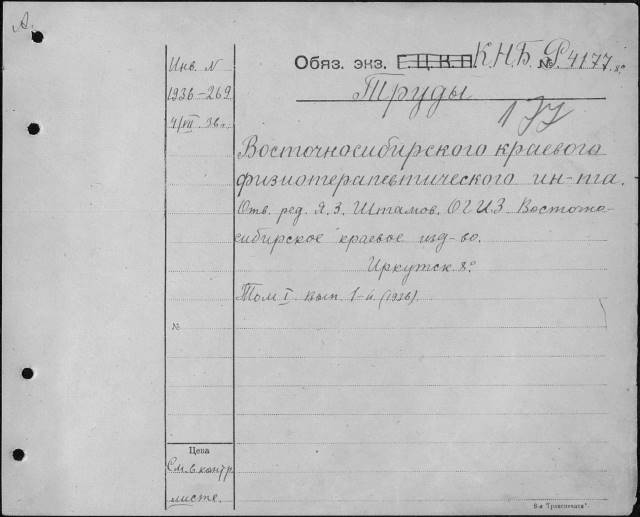 А.
Обяз. экз. Г. Ц. К. П. К.Н.Б. № Р4177. 8°
Инв. N
1936-269
4/VII 36 г.
Труды
177
Восточносибирского краевого
физиотерапевтического ин-та.
Отв. ред. Я. З. Штамов. ОГИЗ Восточно-
сибирское краевое изд-во.
Иркутск 8°
Том I вып 1-й (1936).
№
Цена
См. в контр.
листе.